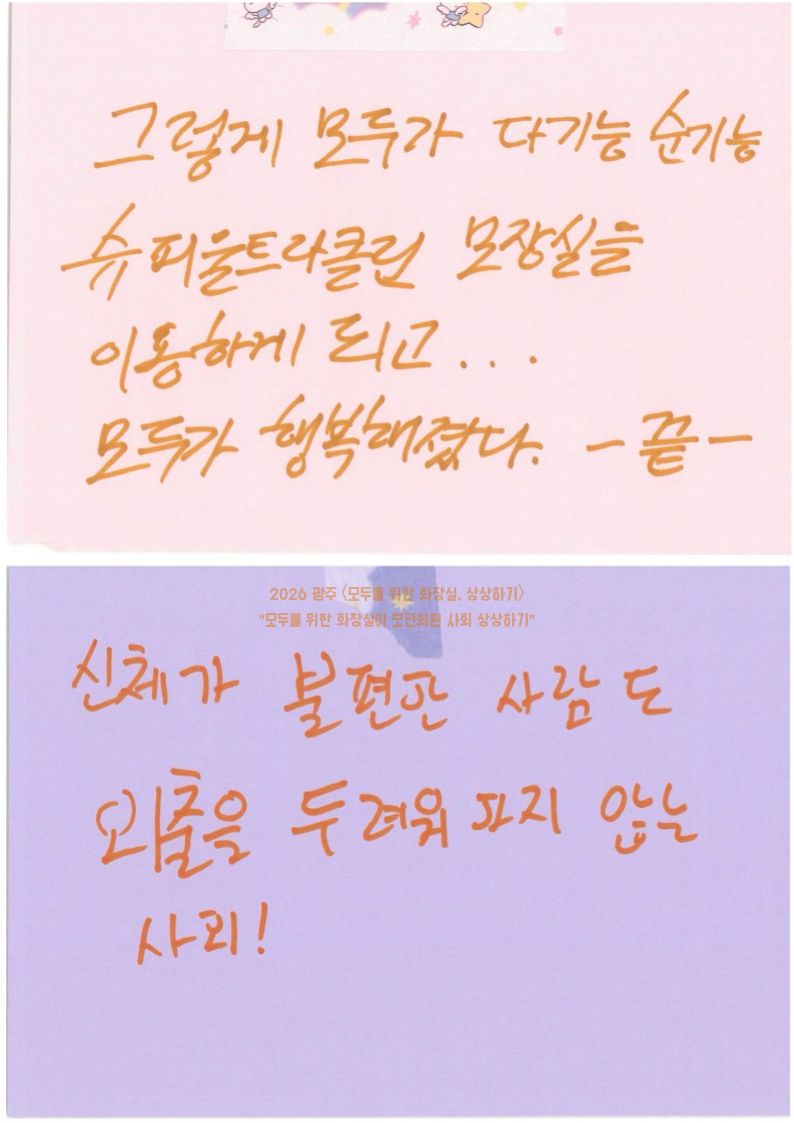 그렇게 모두가 다기능 순기능
슈퍼울트라클린 모장실을
이용하게 되고...
모두가 행복해졌다. -끝-
2026 광주 <모두를 위한 화장실, 상상하기>
"모두를 위한 화장실이 보편화된 사회 상상하기"
신체가 불편한 사람도
외출을 두려워하지 않는
사회!